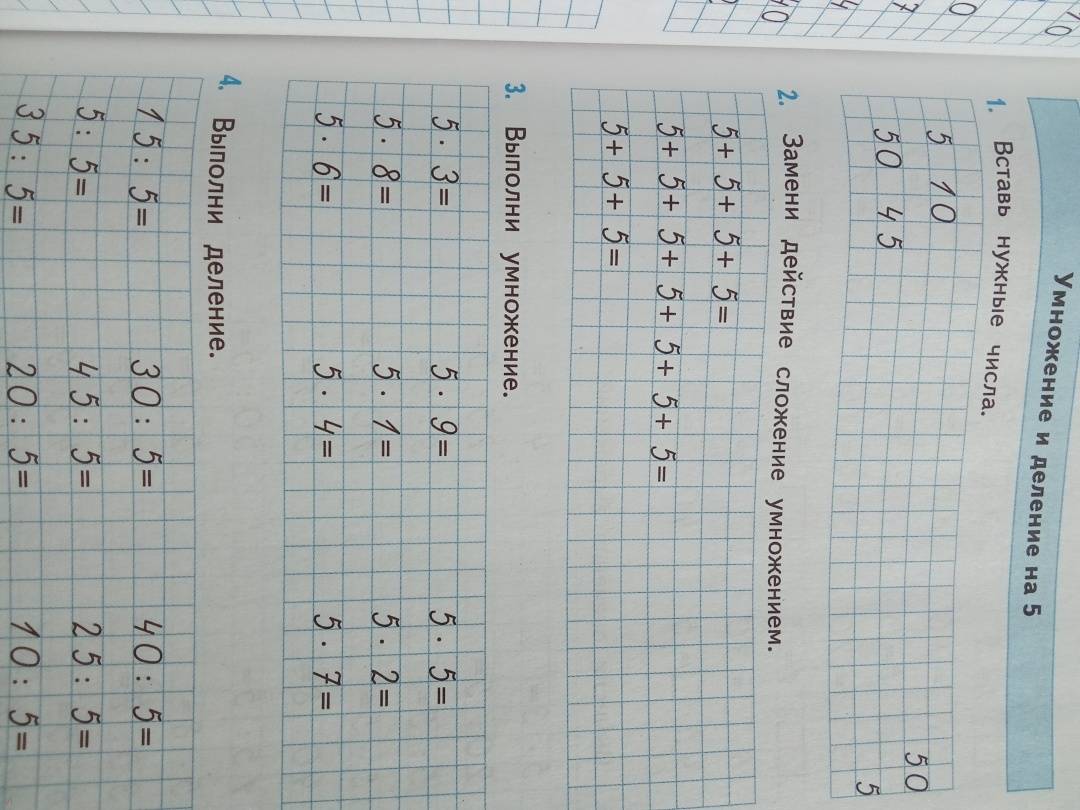 Умножение и деление на 5
1. Вставь нужные числа.
5 10 50
50 45 5
2. Замени действие сложение умножением.
5+ 5+ 5+ 5=
5+ 5+ 5+ 5+ 5+ 5+ 5=
5+ 5+ 5=
3. Выполни умножение.
5 · 3= 5 · 9= 5 · 5=
5 · 8= 5 · 1= 5 · 2=
5 · 6= 5 · 4= 5 · 7=
4. Выполни деление.
15: 5= 30: 5= 40: 5=
5: 5= 45: 5= 25: 5=
35: 5= 20: 5= 10: 5=